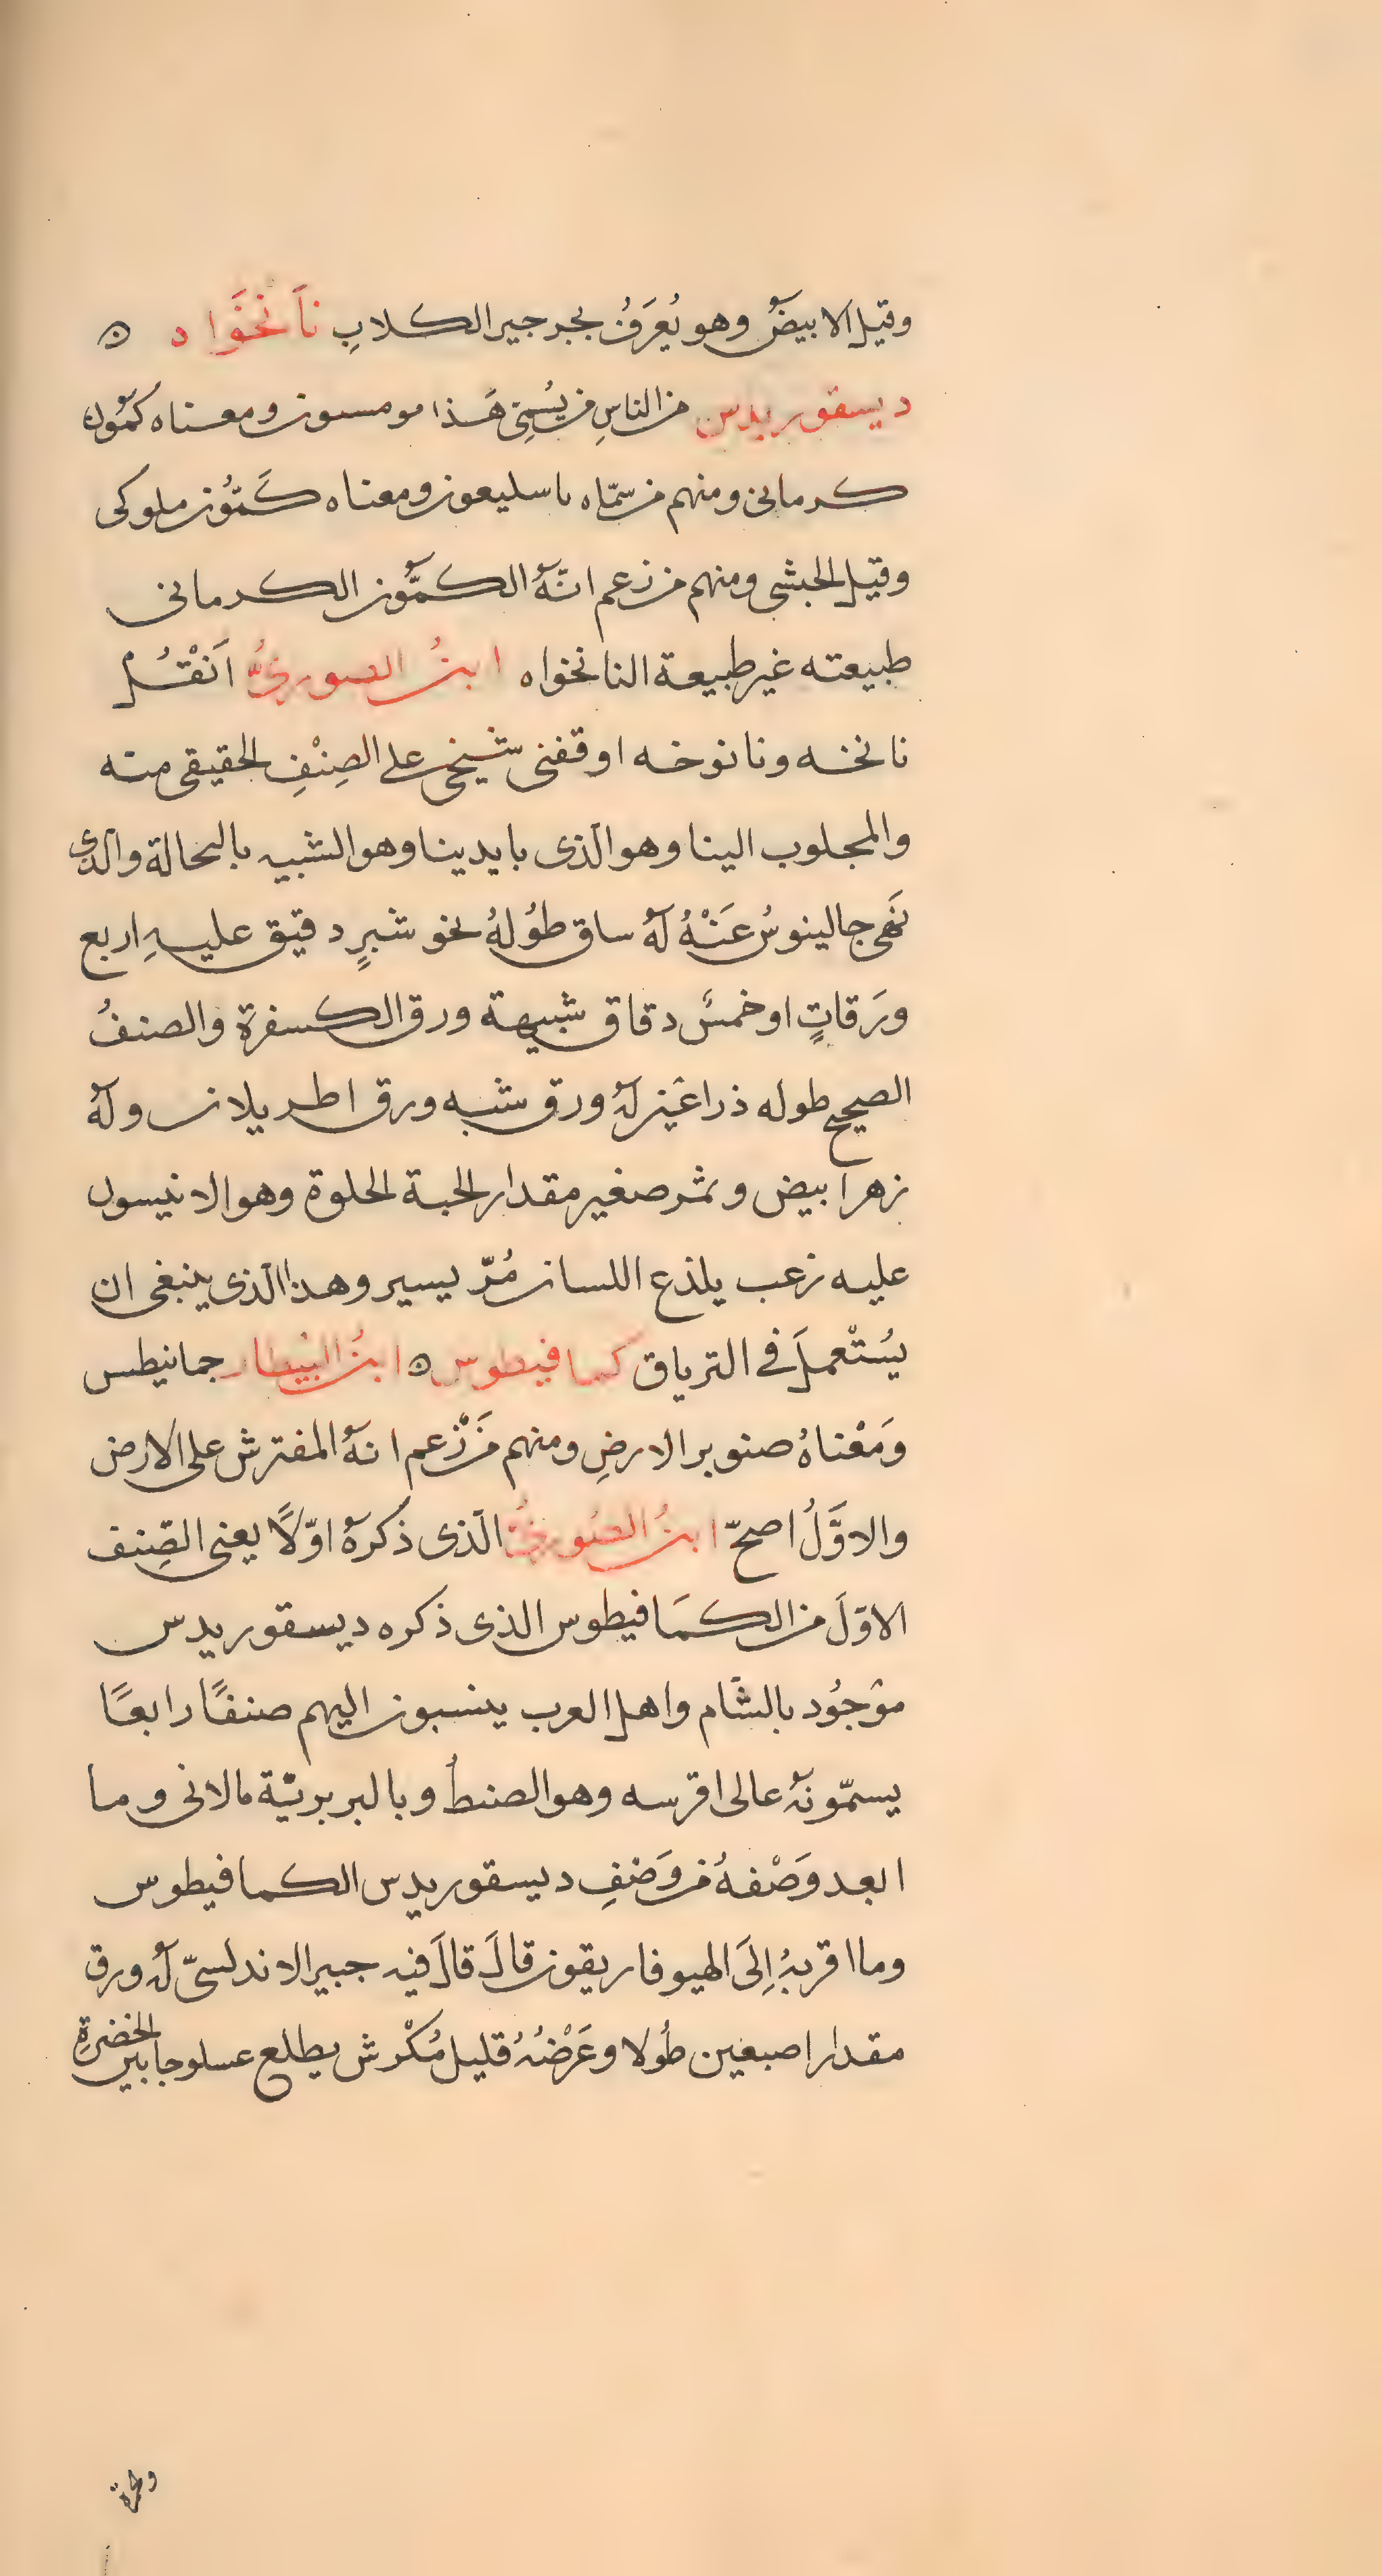 وقيل الابيض وهو يُعرَفُ بجرجير الكلابِ نَانَخَوَاه
ديسقوريدس من الناسِ من يُسمّى هَذا مومسون ومعناه كمّون
كرمانى ومنهم من سمّاه باسليعون ومعناه كَمّوُن ملوكى
وقيل الحبشى ومنهم من زعم انّهُ الكمّون الكرمانى
طبيعته غير طبيعة النانخواه ابنُ الصورىُّ اَنْقُل
نانخه ونانوخه اوقفنى شيخى على الصِنْفِ الحقيقى منه
والمجلوب الينا وهو الّذى بايدينا وهو الشبيه بالنخالة والّذى
نَفى جالينوسُ عَنْهُ لهُ ساق طوُلهُ نحو شبرٍ دقيق عليهِ اربع
ورَقاتٍ او خمسٌ دقاق شبيهة ورق الكسفرة والصنفُ
الصحيح طوله ذراعَين لهُ ورق شبه ورق اطريلان ولهُ
زهر ابيض وثمر صغير مقدار الحبة الحلوة وهو الانيسون
عليه زعب يلذع اللسان مُرّ يسير وهذا الّذى ينبغى ان
يُسْتْعملَ فى الترياق كمافيطوس ابنُ البَيْطار جمانيطس
وَمَعْناهُ صنوبر الارضِ ومنهم مَن زعم انهُ المفترش على الارض
والاوَّلُ اصحّ ابنُ الصُورىُّ الّذى ذكرهُ اوّلًا يعنى الصِنف
الاوّلَ من الكمَافيطوس الذى ذكره ديسقوريدس
موْجوُد بالشّام واهل العرب ينسبون اليهم صنفًا رابعًا
يسمّونهُ عالى اقرسه وهو الصنطُ وبالبربريّة مالانى وما
ابعد وَصْفهُ من وَصْفِ ديسقوريدس الكمافيطوس
وما اقربهُ اِلَى الهيوفاريقون قالَ قالَ فيه جبير الاندلسىّ لهُ ورق
مقدار اصبعين طُولا وعَرْضُهُ قليل مُكْرش يطلع عسلوجا بين الخضرةِ
وحمرة